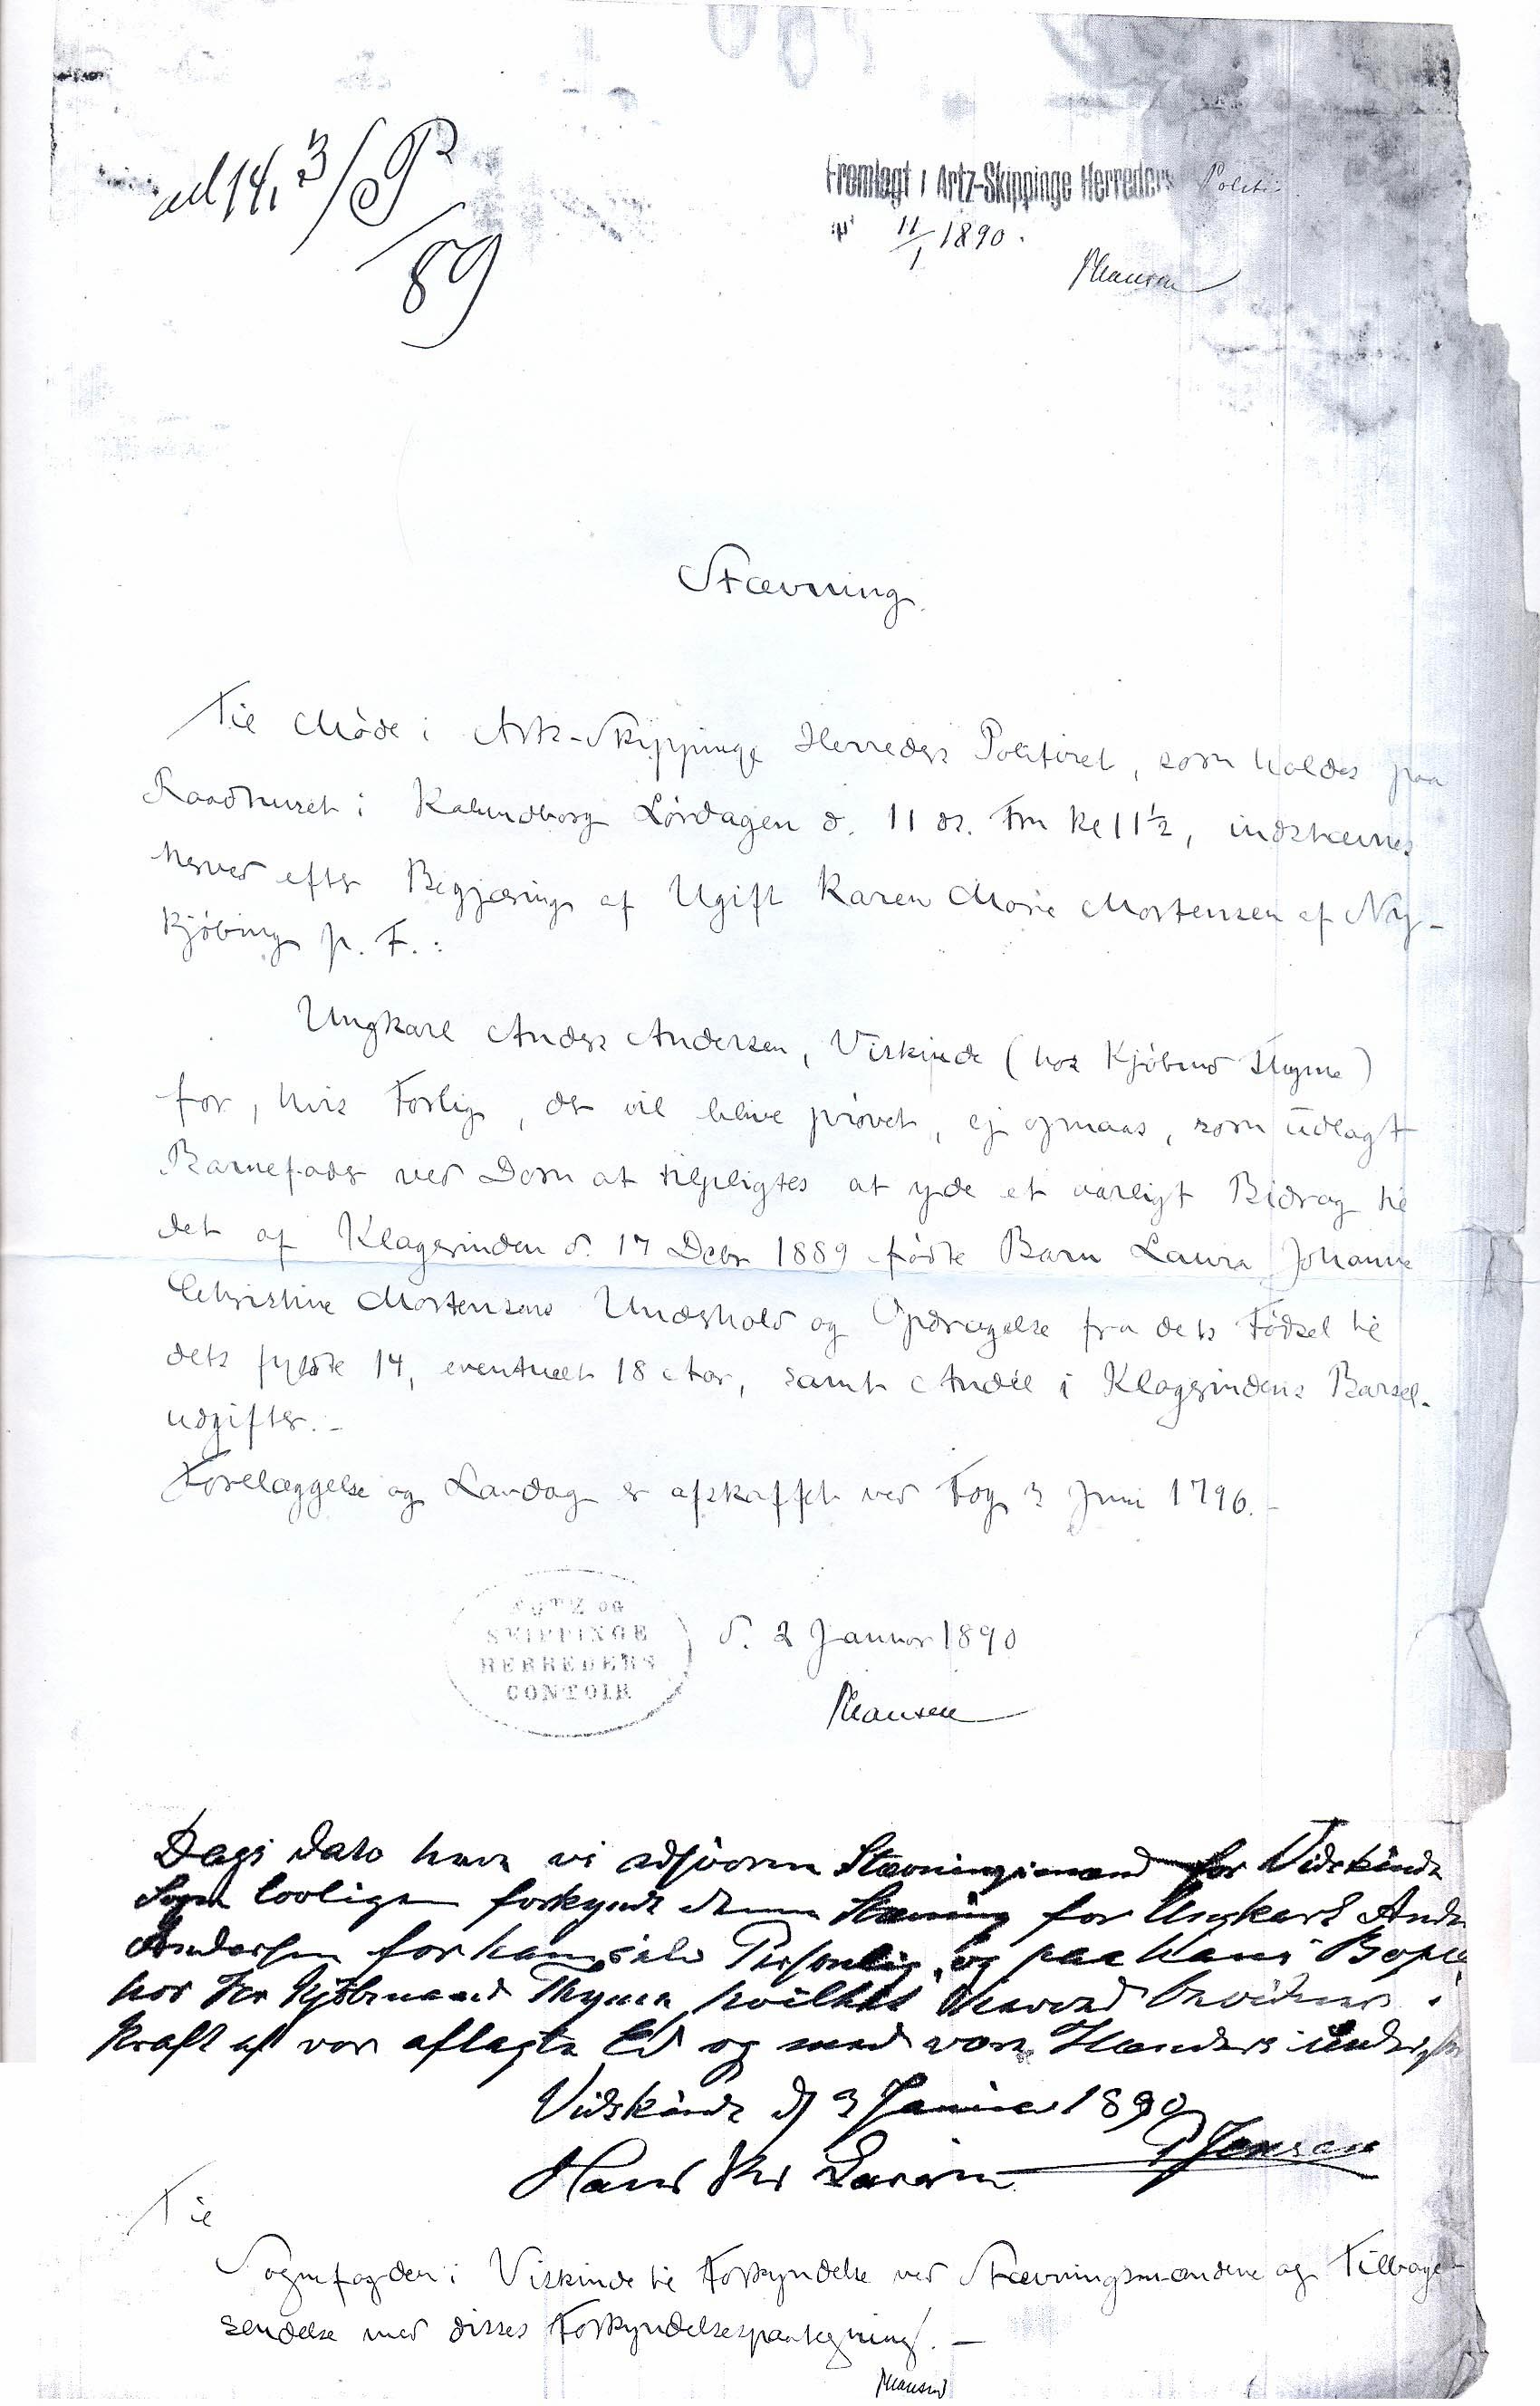 ad 14, 3/P
89
Fremlagt i Artz-Skippinge Herreders Politi
11/1 1890.
Stævning.
Til Møde i Artz-Skippinge Herreders Politiret, som holdes paa
Raadhuset i Kalundborg Lørdagen d. 11 ds. Fm Kl 11½, indstævnes
herved efter Begjæring af Ugift Karen Marie Mortensen af Ny-
kjøbing p. F.:
Ungkarl Anders Andersen, Viskinde (hos Kjøbmd Thyme)
for, hvis Forlig, der vil blive prøvet, ej opnaas, som udlagt
Barnefader ved Dom at tilpligtes at yde et aarligt Bidrag til
det af Klagerinden d. 17 Decbr 1889 fødte Barn Laura Johanne
Christine Mortensens Underhold og Opdragelse fra dets Fødsel til
dets fyldte 14, eventuelt 18 Aar, samt Andel i Klagerindens Barsel-
udgifter.-
Forelæggelse og Lavdag er afskaffet ved Fog 3 Juni 1796.-
ARTZ OG
SKIPPINGE
HERREDERS
CONTOIR
d. 2 Januar 1890
Dags Dato have vi edsvorne Stævningsmænd for Vidskinde
Sogn lovligen forkyndt denne Stævning for Ungkarl Anders
Andersen for ham selv Personlig, og paa hans Bopæl
hos Hr Kjøbmand Thyme, hvilket herved bevidnes i
Kraft af vor aflagte Ed og med vore Hænders Underskr
Vidskinde d 3 Januar 1890
Hans Larsen P Jensen
Til
Sognefogden i Viskinde til Forkyndelse ved Stævningsmændene og Tilbage-
sendelse med disses Forkyndelsespaategning. -